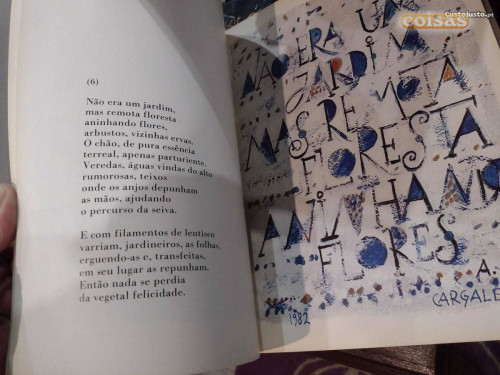 (6)
Não era um jardim,
mas remota floresta
aninhando flores,
arbustos, vizinhas ervas.
O chão, de pura essência
terreal, apenas parturiente.
Veredas, águas vindas do alto
rumorosas, teixos
onde os anjos depunham
as mãos, ajudando
o percurso da seiva.
E com filamentos de lentisco
varriam, jardineiros, as folhas,
erguendo-as e, transfeitas,
em seu lugar as repunham.
Então nada se perdia
da vegetal felicidade.
NÃO ERA UM
JARDIM
MAS REMOTA
FLORESTA
ANINHANDO
FLORES
A.
CARGALE
1982
CustoJusto.pt
coisas